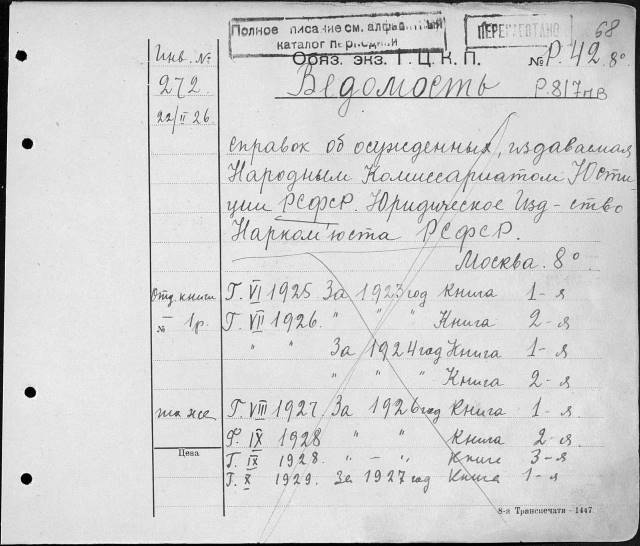 Полное описание см. алфавитный
каталог периодики
ПЕРЕПЛЕТАНО
68
Обяз. экз. Г. Ц. К. П.
№ Р.42. 8°
Инв. №
272
22/II 26.
Ведомость
Р.817пв
справок об осужденных, издаваемая
Народным Комиссариатом Юсти
ции РСФСР. Юридическое Изд-ство
Нарком'юста РСФСР.
Москва. 8°.
Отд. книги Г. VI 1925 За 1923 год Книга 1-я
№ 1р. Г. VII 1926. " " " Книга 2-я
" " За 1924 год Книга 1-я
" " " Книга 2-я
та же Г. VIII 1927. За 1926 год Книга 1-я
Г. IX 1928 " " Книга 2-я
Цена Г. IX 1928. " — " Книг 3-я
Г. X 1929. За 1927 год Книга 1-я
8-я Транспечати - 1447